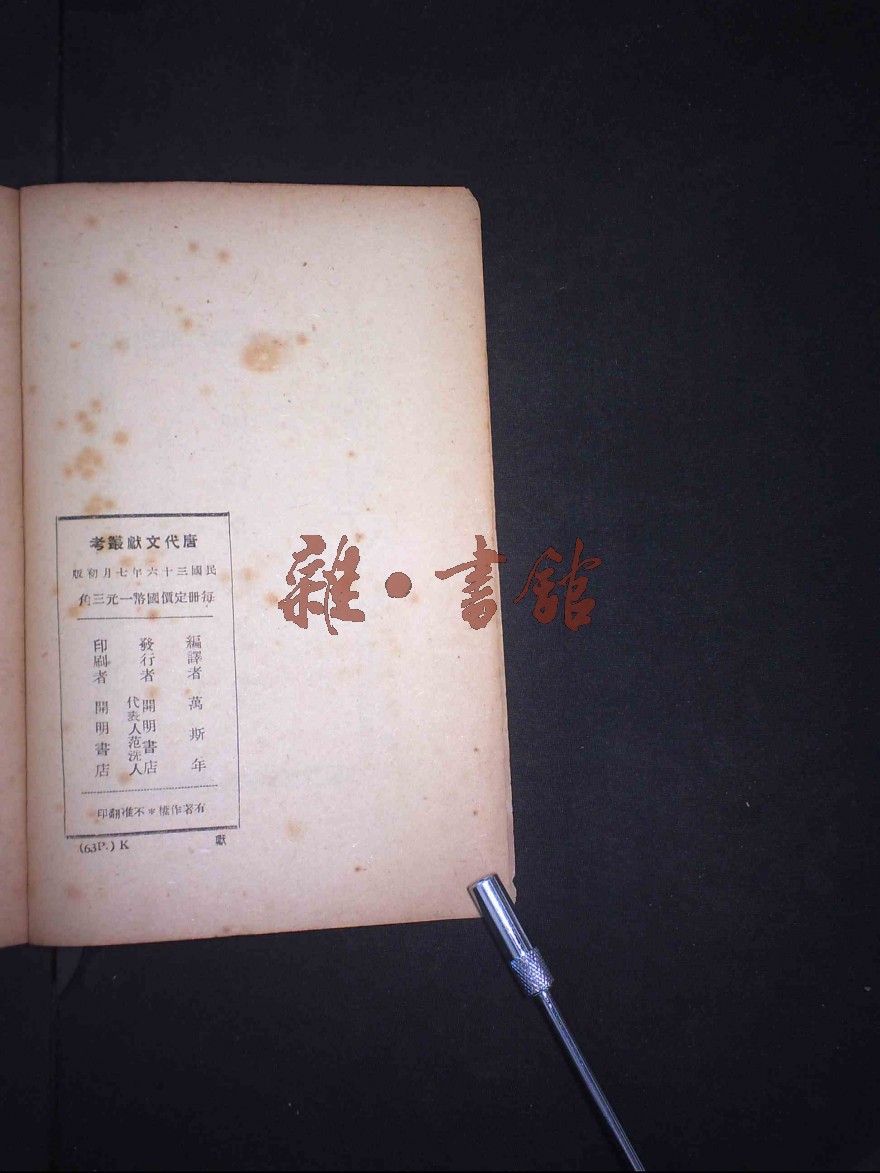 唐代文獻叢考
民國三十六年七月初版
每册定價國幣一元三角
編譯者 萬斯年
發行者 開明書店
代表人范洗人
印刷者 開明書店
有著作權＊不准翻印
(63P.) K 獻
雜·書館